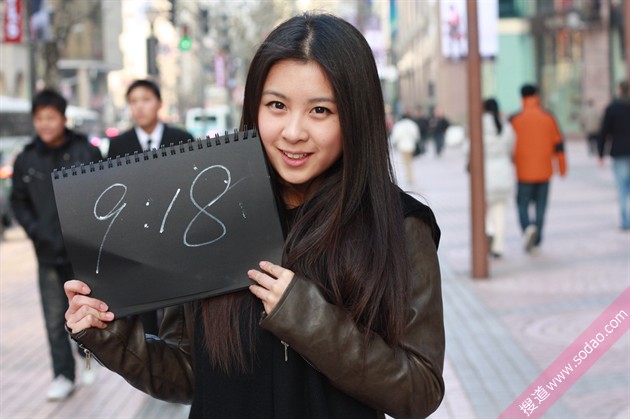 9:18
搜道www.sodao.com